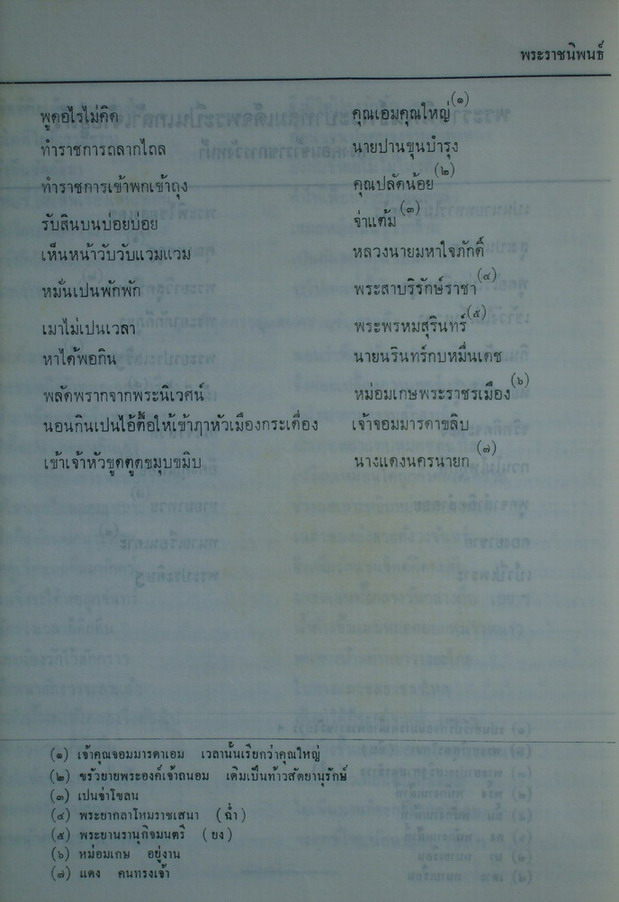 พระราชนิพนธ์
พูดอไรไม่คิด คุณเอมคุณใหญ่(๑)
ทำราชการถลากไถล นายปานขุนบำรุง
ทำราชการเข้าพกเข้าถุง คุณปลัดน้อย(๒)
รับสินบนบ่อยบ่อย จ่าแต้ม(๓)
เห็นหน้าวับวับแวมแวม หลวงนายมหาใจภักดิ์
หมั่นเปนพักพัก พระสาบริรักษ์ราชา(๔)
เมาไม่เปนเวลา พระพรหมสุรินทร์(๕)
หาได้พอกิน นายนรินทร์กบหมื่นเดช
พลัดพรากจากพระนิเวศน์ หม่อมเกษพระราชรเมือง(๖)
นอนกินเปนไอ้ตื้อให้เข้าฦาหัวเมืองกระเดื่อง เจ้าจอมมารดาขลิบ
เข้าเจ้าหัวขูดตูดขมุบขมิบ นางแดงนครนายก(๗)
(๑) เจ้าคุณจอมมารดาเอม เวลานั้นเรียกว่าคุณใหญ่
(๒) ขรัวยายพระองค์เจ้าถนอม เดิมเป็นท้าวสัตยานุรักษ์
(๓) เปนจ่าโขลน
(๔) พระยากลาโหมราชเสนา (ฉ่ำ)
(๕) พระยานรานุกิจมนตรี (ยง)
(๖) หม่อมเกษ อยู่งาน
(๗) แดง คนทรงเจ้า